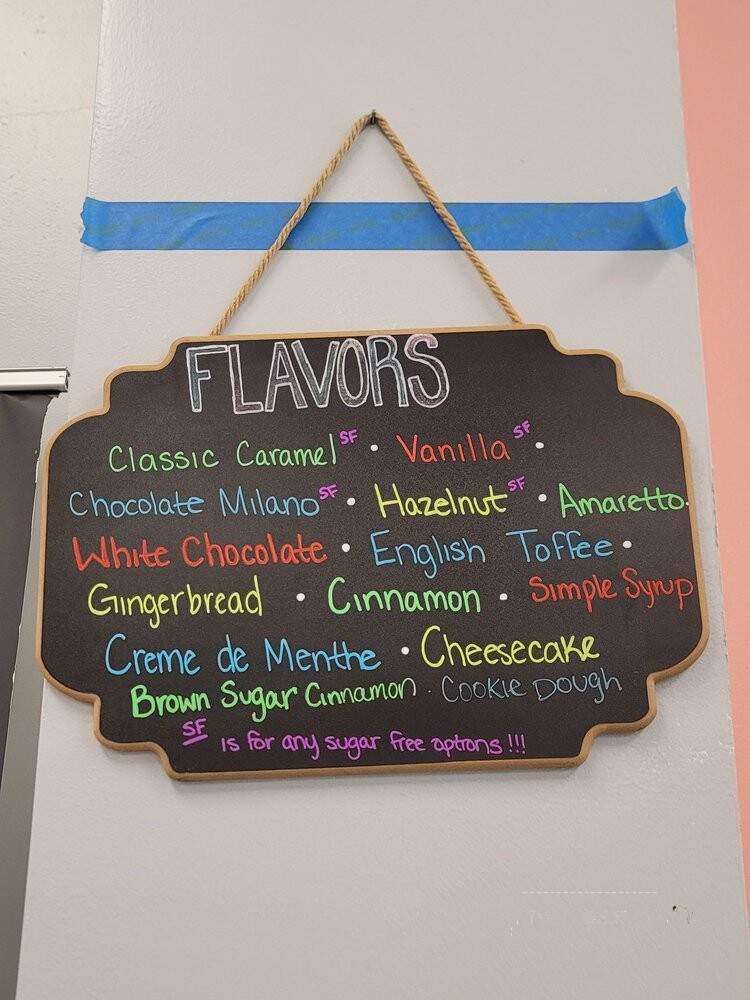 FLAVORS
Classic Caramel SF • Vanilla SF •
Chocolate Milano SF • Hazelnut SF • Amaretto •
White Chocolate • English Toffee •
Gingerbread • Cinnamon • Simple Syrup
Creme de Menthe • Cheesecake
Brown Sugar Cinnamon • Cookie Dough
SF is for any sugar free optrons !!!